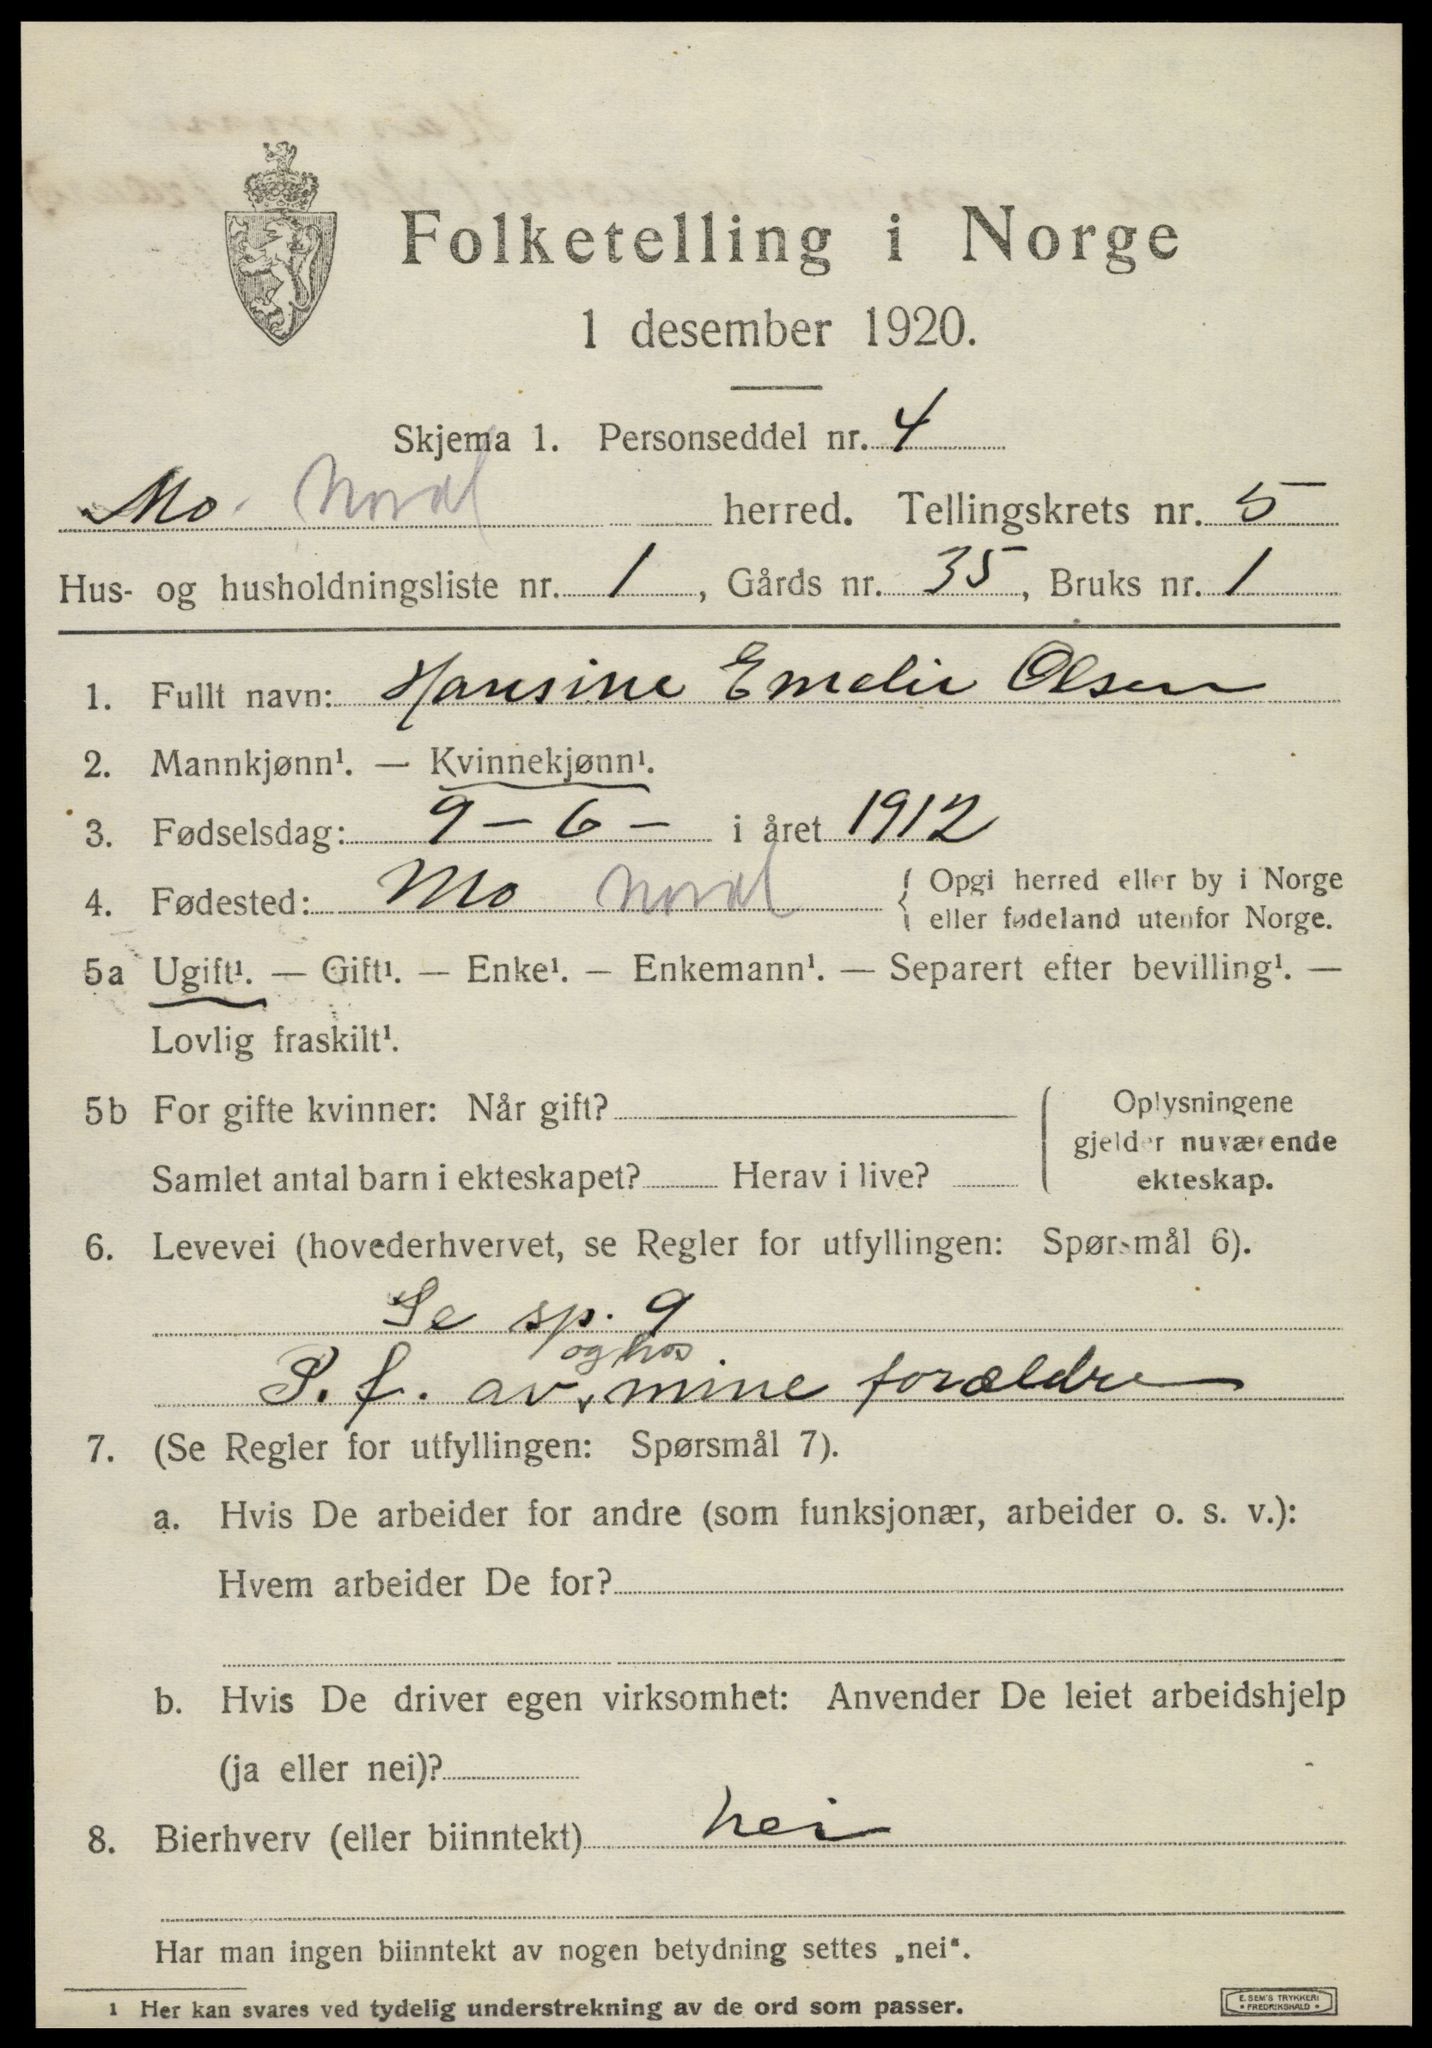 Folketelling i Norge
1 desember 1920.
Skjema 1. Personseddel nr. 4
Mo Nordl herred. Tellingskrets nr. 5
Hus- og husholdningsliste nr. 1, Gårds nr. 35, Bruks nr. 1
1. Fullt navn: Hansine Emelie Olsen
2. Mannkjønn¹. — Kvinnekjønn¹.
3. Fødselsdag: 9 - 6 - i året 1912
4. Fødested: Mo Nordl { Opgi herred eller by i Norge
eller fødeland utenfor Norge.
5a Ugift¹. — Gift¹. — Enke¹. — Enkemann¹. — Separert efter bevilling¹. —
Lovlig fraskilt¹.
5b For gifte kvinner: Når gift?
Samlet antal barn i ekteskapet? Herav i live?
Oplysningene
gjelder nuværende
ekteskap.
6. Levevei (hovederhvervet, se Regler for utfyllingen: Spørsmål 6).
Se sp. 9
og hos
P. f. av mine forældre
7. (Se Regler for utfyllingen: Spørsmål 7).
a. Hvis De arbeider for andre (som funksjonær, arbeider o. s. v.):
Hvem arbeider De for?
b. Hvis De driver egen virksomhet: Anvender De leiet arbeidshjelp
(ja eller nei)?
8. Bierhverv (eller biinntekt) nei
Har man ingen biinntekt av nogen betydning settes „nei“.
1 Her kan svares ved tydelig understrekning av de ord som passer.
E. SEM'S TRYKKERI
• FREDRIKSHALD •